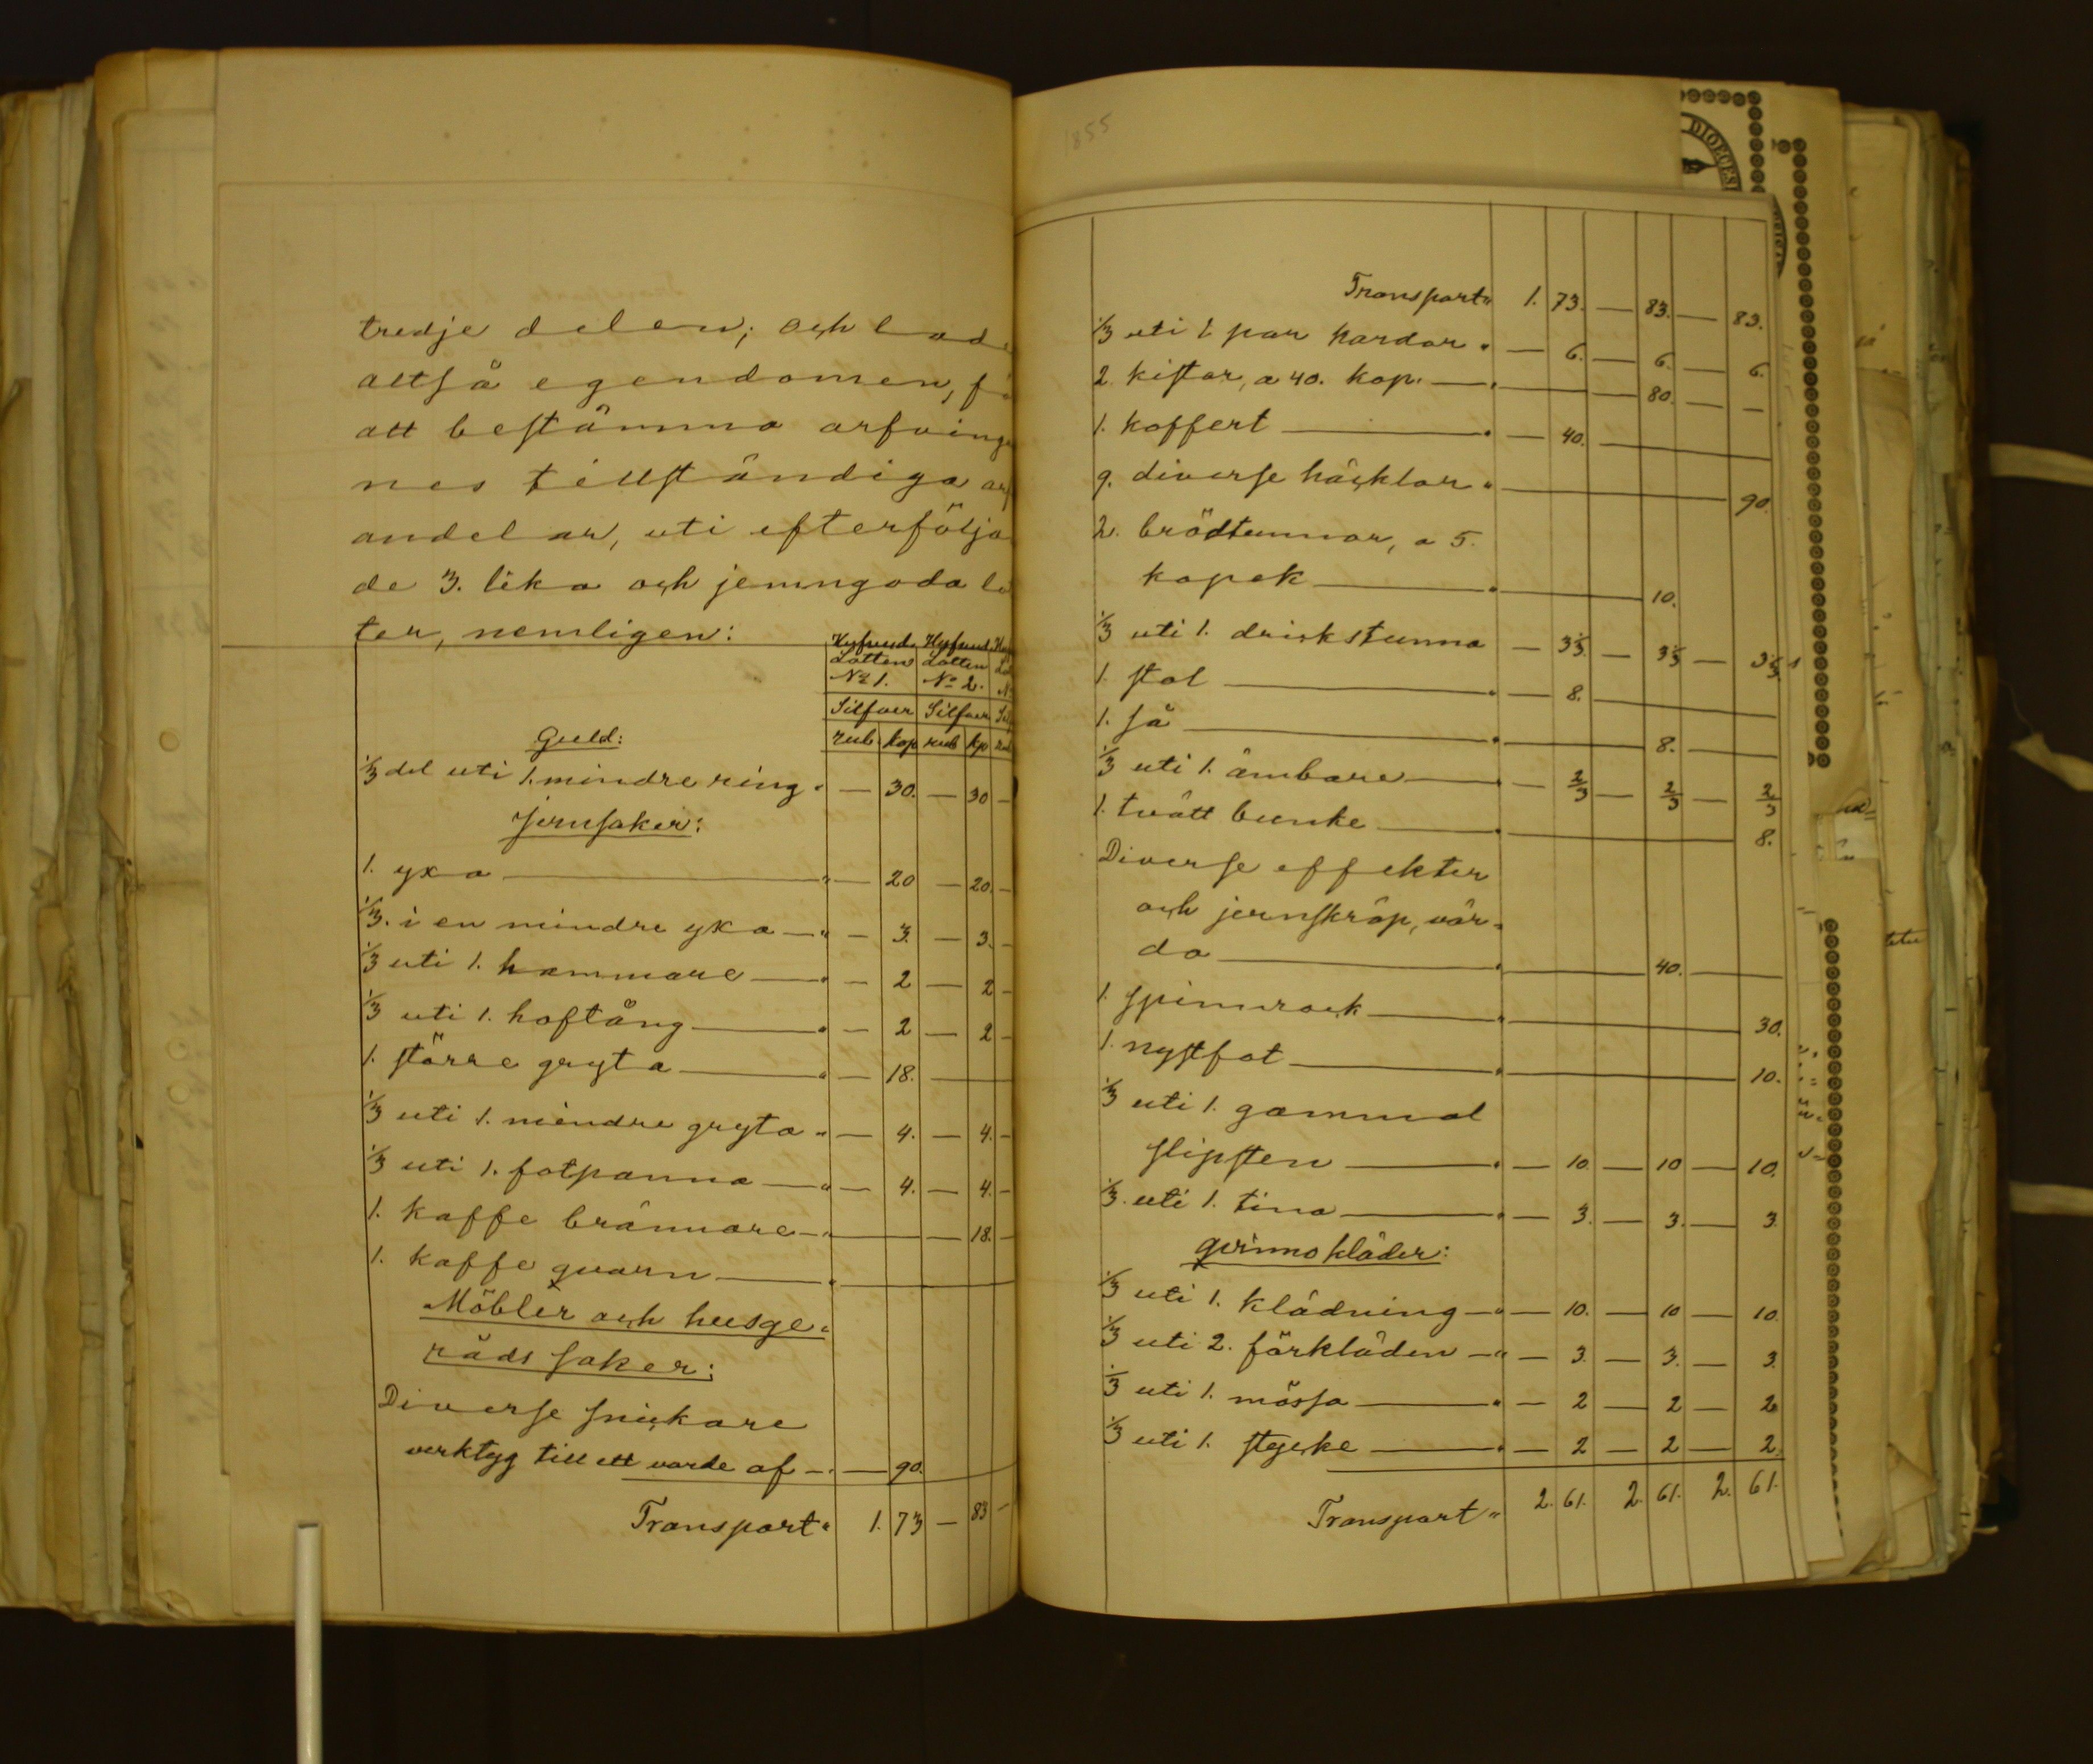 tredje delen; och lade
altså egendomen, fö
att bestämma arfvinga
nes tillständiga arf
andelar, uti efterföljan
de 3. lika och jemngoda lo
ter, nemligen:
Hufvud Hufvud
Lotten Lotten
No 1. No 2.
Silfver Silfver
rub. kop rub kp
Guld:
1/3 del uti 1. mindre ring " — 30. — 30 —
Jernsaker:
1. yxa — " — 20 — 20. —
1/3. i en mindre yxa — " — 3. — 3. —
1/3 uti 1. hammare — " — 2 — 2 —
1/3 uti 1. hoftång — " — 2 — 2 —
1. större gryta — " — 18. —
1/3 uti 1. mindre gryta " — 4. — 4. —
1/3 uti 1. fotpanna — " — 4. — 4. —
1. kaffe brännare — " — 18. —
1. kaffe qvarn — " —
Möbler och husge-
råds saker:
Diverse snickare
verktyg till ett varde af — " — 90.
Transport " 1. 73 — 83 —
1855
DIOECES
Transport " 1. 73. — 83. — 83.
1/3 uti 1 par kardor " — 6. — 6. — 6.
2. kistor, a 40. kop. — " — 80. — —
1. koffert — " — 40. —
9. diverse häcklor " — 90.
2. brödtunnor, a 5.
kopek — " — 10.
1/3 uti 1. drickstunna — 3 1/3. — 3 1/3 — 3 1/3
1. stol — " — 8. —
1. så — " — 8. —
1/3 uti 1. ämbare — " — 2/3 — 2/3 — 2/3
1. tvätt bunke — " — 8.
Diverse effekter
och jernskråp, vär-
da — " — 40. —
1. spinnrock — " — 30.
1. nystfot — " — 10.
1/3 uti 1. gammal
slipsten — " — 10. — 10 — 10.
1/3. uti 1. tina — " — 3. — 3. — 3.
qvinno kläder:
1/3 uti 1. klädning — " — 10. — 10 — 10.
1/3 uti 2. förkläden — " — 3. — 3. — 3.
1/3 uti 1. mössa — " — 2 — 2 — 2
1/3 uti 1. stycke — " — 2 — 2 — 2.
Transport " 2. 61. 2. 61. 2. 61.